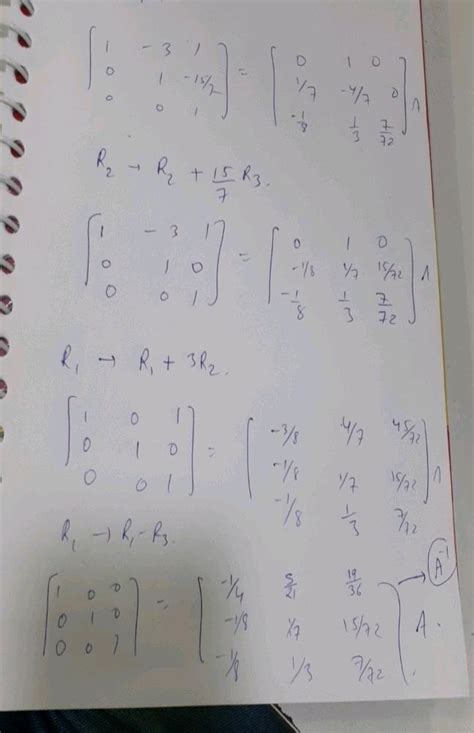 [1 -3 1; 0 1 -15/7; 0 0 1] = [0 1 0; 1/7 -4/7 0; -1/8 1/3 7/72] A
R₂ → R₂ + 15/7 R₃.
[1 -3 1; 0 1 0; 0 0 1] = [0 1 0; -1/8 1/7 15/72; -1/8 1/3 7/72] A
R₁ → R₁ + 3R₂.
[1 0 1; 0 1 0; 0 0 1] = [-3/8 4/7 45/72; -1/8 1/7 15/72; -1/8 1/3 7/72] A
R₁ → R₁ - R₃.
[1 0 0; 0 1 0; 0 0 1] = [-1/4 5/21 19/36; -1/8 1/7 15/72; -1/8 1/3 7/72] A. → A⁻¹